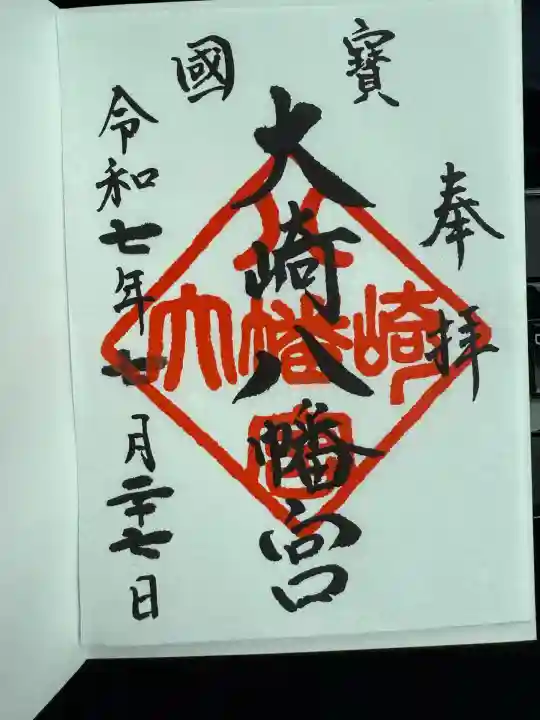 國寶
奉拝
大崎八幡宮
令和七年七月二十七日
大崎八幡宮